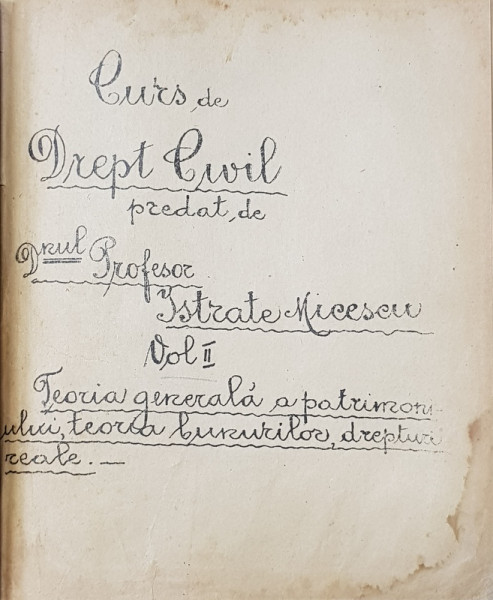 Curs de
Drept Civil
predat de
Dnul Profesor
Istrate Micescu
Vol II
Teoria generală a patrimoni-
ului, teoria bunurilor, drepturi
reale. —